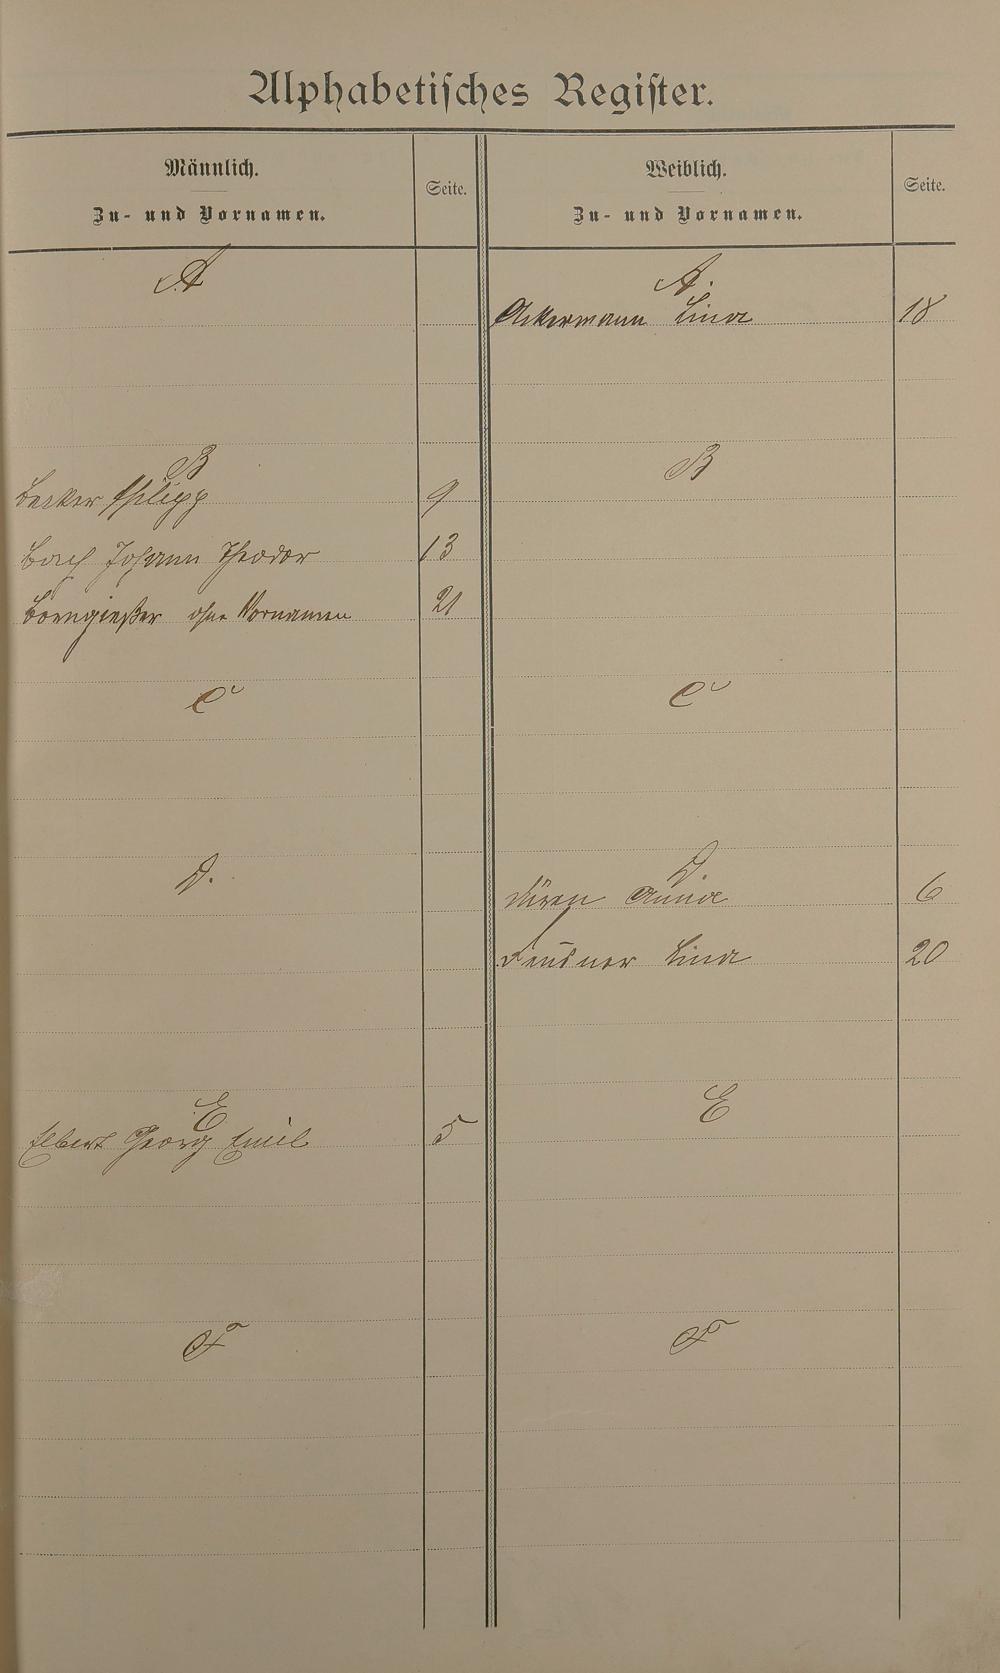 Alphabetisches Register.
Männlich.
Zu- und Vornamen.
Seite.
Weiblich.
Zu- und Vornamen.
Seite.
A
A.
Ackermann Lina 18
B
B
Becker Philipp 9
Bach Johann Theodor 13
Borngießer ohne Vornamen 21
C
C
D.
D.
Düren Anna 6
Lina 20
E
E
Elbert Georg Emil 5
F
F